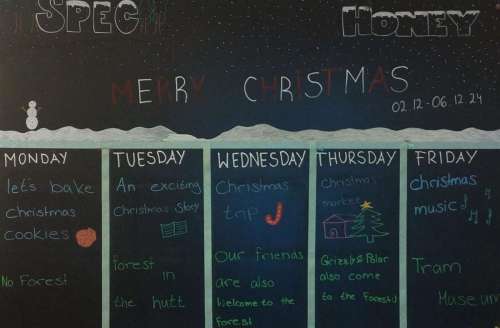 SPEC HONEY
MERRY CHRISTMAS
02.12-06.12.24
MONDAY
let's bake
christmas
cookies
No Forest
TUESDAY
An exciting
Christmas Story
forest
in
the hutt
WEDNESDAY
Christmas
trip
Our friends
are also
Welcome to the
forest
THURSDAY
Christmas
market
Grizzly & Polar
also come
to the Forest:)
FRIDAY
christmas
music
Tram
Museum